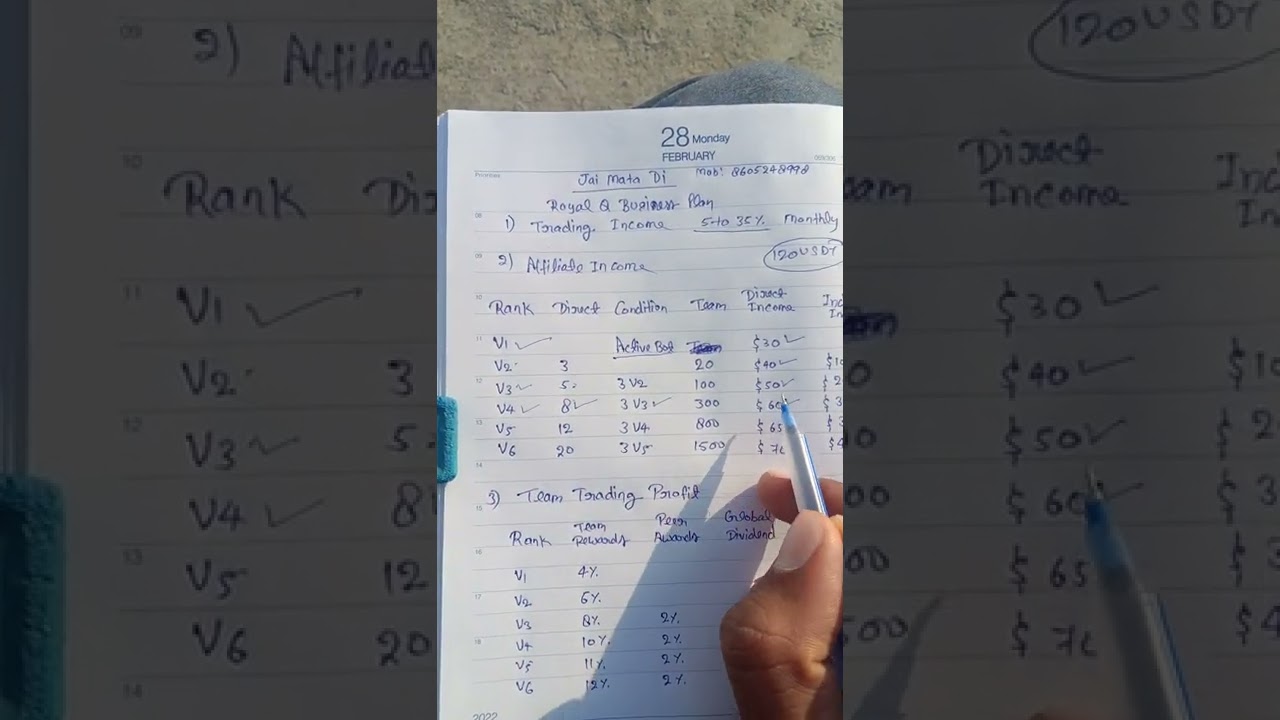 28 Monday
FEBRUARY
Jai Mata Di Mob: 8605248998
Royal Q Business Plan
1) Trading Income 5 to 35% monthly
120USDT
2) Affiliate Income
Rank Direct Condition Team Direct Income
V1 Active Bot $30
V2 3 20 $40
V3 5 3 V2 100 $50
V4 8 3 V3 300 $60
V5 12 3 V4 800 $65
V6 20 3 V5 1500
3) Team Trading Profit
Rank Team Rewards Peer Awards Global Dividend
V1 4%
V2 6%
V3 8% 2%
V4 10% 2%
V5 11% 2%
V6 12% 2%
2022